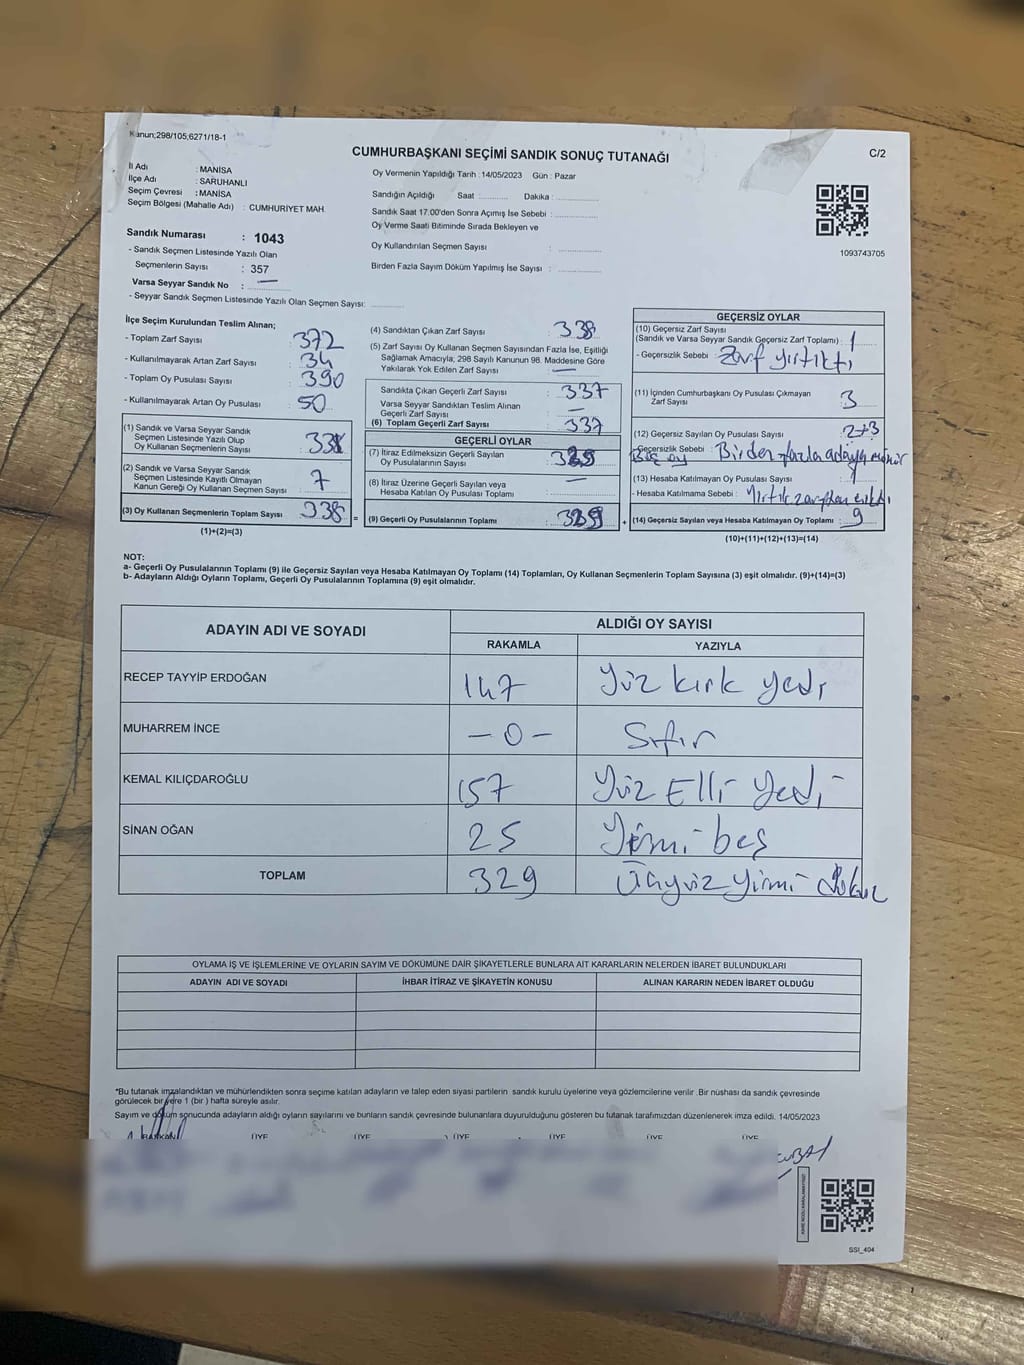 Kanun;298/105;6271/18-1
CUMHURBAŞKANI SEÇİMİ SANDIK SONUÇ TUTANAĞI
C/2
İl Adı : MANİSA
İlçe Adı : SARUHANLI
Seçim Çevresi : MANİSA
Seçim Bölgesi (Mahalle Adı) : CUMHURİYET MAH.
Sandık Numarası : 1043
- Sandık Seçmen Listesinde Yazılı Olan
Seçmenlerin Sayısı : 357
Varsa Seyyar Sandık No :
- Seyyar Sandık Seçmen Listesinde Yazılı Olan Seçmen Sayısı:
Oy Vermenin Yapıldığı Tarih :14/05/2023 Gün : Pazar
Sandığın Açıldığı Saat : Dakika :
Sandık Saat 17.00'den Sonra Açımış İse Sebebi :
Oy Verme Saati Bitiminde Sırada Bekleyen ve
Oy Kullandırılan Seçmen Sayısı :
Birden Fazla Sayım Döküm Yapılmış İse Sayısı :
1093743705
İlçe Seçim Kurulundan Teslim Alınan;
- Toplam Zarf Sayısı : 372
- Kullanılmayarak Artan Zarf Sayısı : 34
- Toplam Oy Pusulası Sayısı : 390
- Kullanılmayarak Artan Oy Pusulası : 50
(1) Sandık ve Varsa Seyyar Sandık
Seçmen Listesinde Yazılı Olup
Oy Kullanan Seçmenlerin Sayısı :
(2) Sandık ve Varsa Seyyar Sandık
Seçmen Listesinde Kayıtlı Olmayan
Kanun Gereği Oy Kullanan Seçmen Sayısı : 7
(3) Oy Kullanan Seçmenlerin Toplam Sayısı : 338 =
(1)+(2)=(3)
(4) Sandıktan Çıkan Zarf Sayısı : 338
(5) Zarf Sayısı Oy Kullanan Seçmen Sayısından Fazla İse, Eşitliği
Sağlamak Amacıyla; 298 Sayılı Kanunun 98. Maddesine Göre
Yakılarak Yok Edilen Zarf Sayısı : —
Sandıkta Çıkan Geçerli Zarf Sayısı : 337
Varsa Seyyar Sandıktan Teslim Alınan
Geçerli Zarf Sayısı : —
(6) Toplam Geçerli Zarf Sayısı : 337
GEÇERLİ OYLAR
(7) İtiraz Edilmeksizin Geçerli Sayılan
Oy Pusulalarının Sayısı : 329
(8) İtiraz Üzerine Geçerli Sayılan veya
Hesaba Katılan Oy Pusulası Toplamı : —
(9) Geçerli Oy Pusulalarının Toplamı : 329 +
GEÇERSİZ OYLAR
(10) Geçersiz Zarf Sayısı
(Sandık ve Varsa Seyyar Sandık Geçersiz Zarf Toplamı) : 1
- Geçersizlik Sebebi : Zarf yırtıktı
(11) İçinden Cumhurbaşkanı Oy Pusulası Çıkmayan
Zarf Sayısı : 3
(12) Geçersiz Sayılan Oy Pusulası Sayısı : 2+3
- Geçersizlik Sebebi : Boş oy Birden fazla adaya mühür
(13) Hesaba Katılmayan Oy Pusulası Sayısı :
- Hesaba Katılmama Sebebi : Yırtık zarftan çıktı
(14) Geçersiz Sayılan veya Hesaba Katılmayan Oy Toplamı : 9
(10)+(11)+(12)+(13)=(14)
NOT:
a- Geçerli Oy Pusulalarının Toplamı (9) ile Geçersiz Sayılan veya Hesaba Katılmayan Oy Toplamı (14) Toplamları, Oy Kullanan Seçmenlerin Toplam Sayısına (3) eşit olmalıdır. (9)+(14)=(3)
b- Adayların Aldığı Oyların Toplamı, Geçerli Oy Pusulalarının Toplamına (9) eşit olmalıdır.
ADAYIN ADI VE SOYADI ALDIĞI OY SAYISI
RAKAMLA YAZIYLA
RECEP TAYYİP ERDOĞAN 147 Yüz kırk yedi
MUHARREM İNCE — 0 — Sıfır
KEMAL KILIÇDAROĞLU 157 Yüz Elli Yedi
SİNAN OĞAN 25 Yirmi beş
TOPLAM 329 Üçyüz yirmi dokuz
OYLAMA İŞ VE İŞLEMLERİNE VE OYLARIN SAYIM VE DÖKÜMÜNE DAİR ŞİKAYETLERLE BUNLARA AİT KARARLARIN NELERDEN İBARET BULUNDUKLARI
ADAYIN ADI VE SOYADI İHBAR İTİRAZ VE ŞİKAYETİN KONUSU ALINAN KARARIN NEDEN İBARET OLDUĞU
*Bu tutanak imzalandıktan ve mühürlendikten sonra seçime katılan adayların ve talep eden siyasi partilerin sandık kurulu üyelerine veya gözlemcilerine verilir. Bir nüshası da sandık çevresinde
görülecek bir yere 1 (bir ) hafta süreyle asılır.
Sayım ve döküm sonucunda adayların aldığı oyların sayılarını ve bunların sandık çevresinde bulunanlara duyurulduğunu gösteren bu tutanak tarafımızdan düzenlenerek imza edildi. 14/05/2023
BAŞKAN ÜYE ÜYE ÜYE ÜYE ÜYE ÜYE
SSI_404